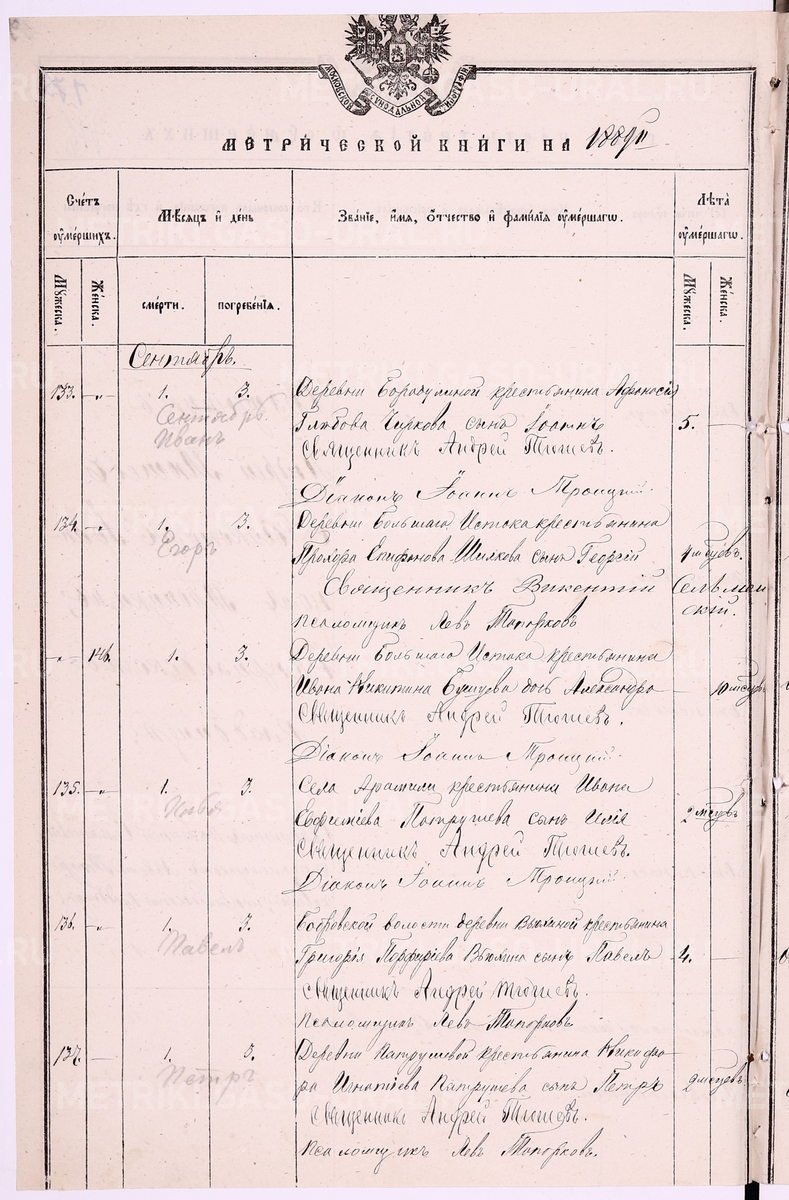 МОСКОВСКОЙ СѴНОДАЛЬНОЙ ТИПОГРАФІИ
МЕТРИЧЕСКОЙ КНИГИ НА 1889
Счетъ умершихъ.
Мѣсяцъ и день
Званіе, имя, отчество и фамилія умершаго.
Лѣта умершаго.
Мужеска.
Женска.
смерти.
погребенія.
Мужеска.
Женска.
Сентябрь.
133. -"- 1. 3. Деревни Бородулиной крестьянина Афонасія
Сентябрь. Глѣбова Чиркова сынъ Іоаннъ 5.
Иванъ Священникъ Андрей
Діаконъ Іоаннъ Троицкій.
134. -"- 1. 3. Деревни Большаго Истока крестьянина
Егоръ Прохора Епифонова сынъ Георгій 4 м
Священникъ Викентій Сельмен
скій.
Псаломщикъ Левъ Топорковъ
-"- 146. 1. 3. Деревни Большаго Истока крестьянина
Ивана Никитина дочь Александра 10
Священникъ Андрей
Діаконъ Іоаннъ Троицкій.
135. -"- 1. 3. Села Арамили крестьянина Ивана
Илья Евфиміева Патрушева сынъ Илія 2 мсцвъ
Священникъ Андрей
Діаконъ Іоаннъ Троицкій.
136. -"- 1. 3. Бобровской волости деревни крестьянина
Павелъ Григорія Порфиріева сынъ Павелъ 4.
Священникъ Андрей
Псаломщикъ Левъ Топорковъ
137. — 1. 3. Деревни Патрушевой крестьянина Никифо-
Петръ ра Игнатіева Патрушева сынъ Петръ 2 мсцевъ.
Священникъ Андрей
Псаломщикъ Левъ Топорковъ.